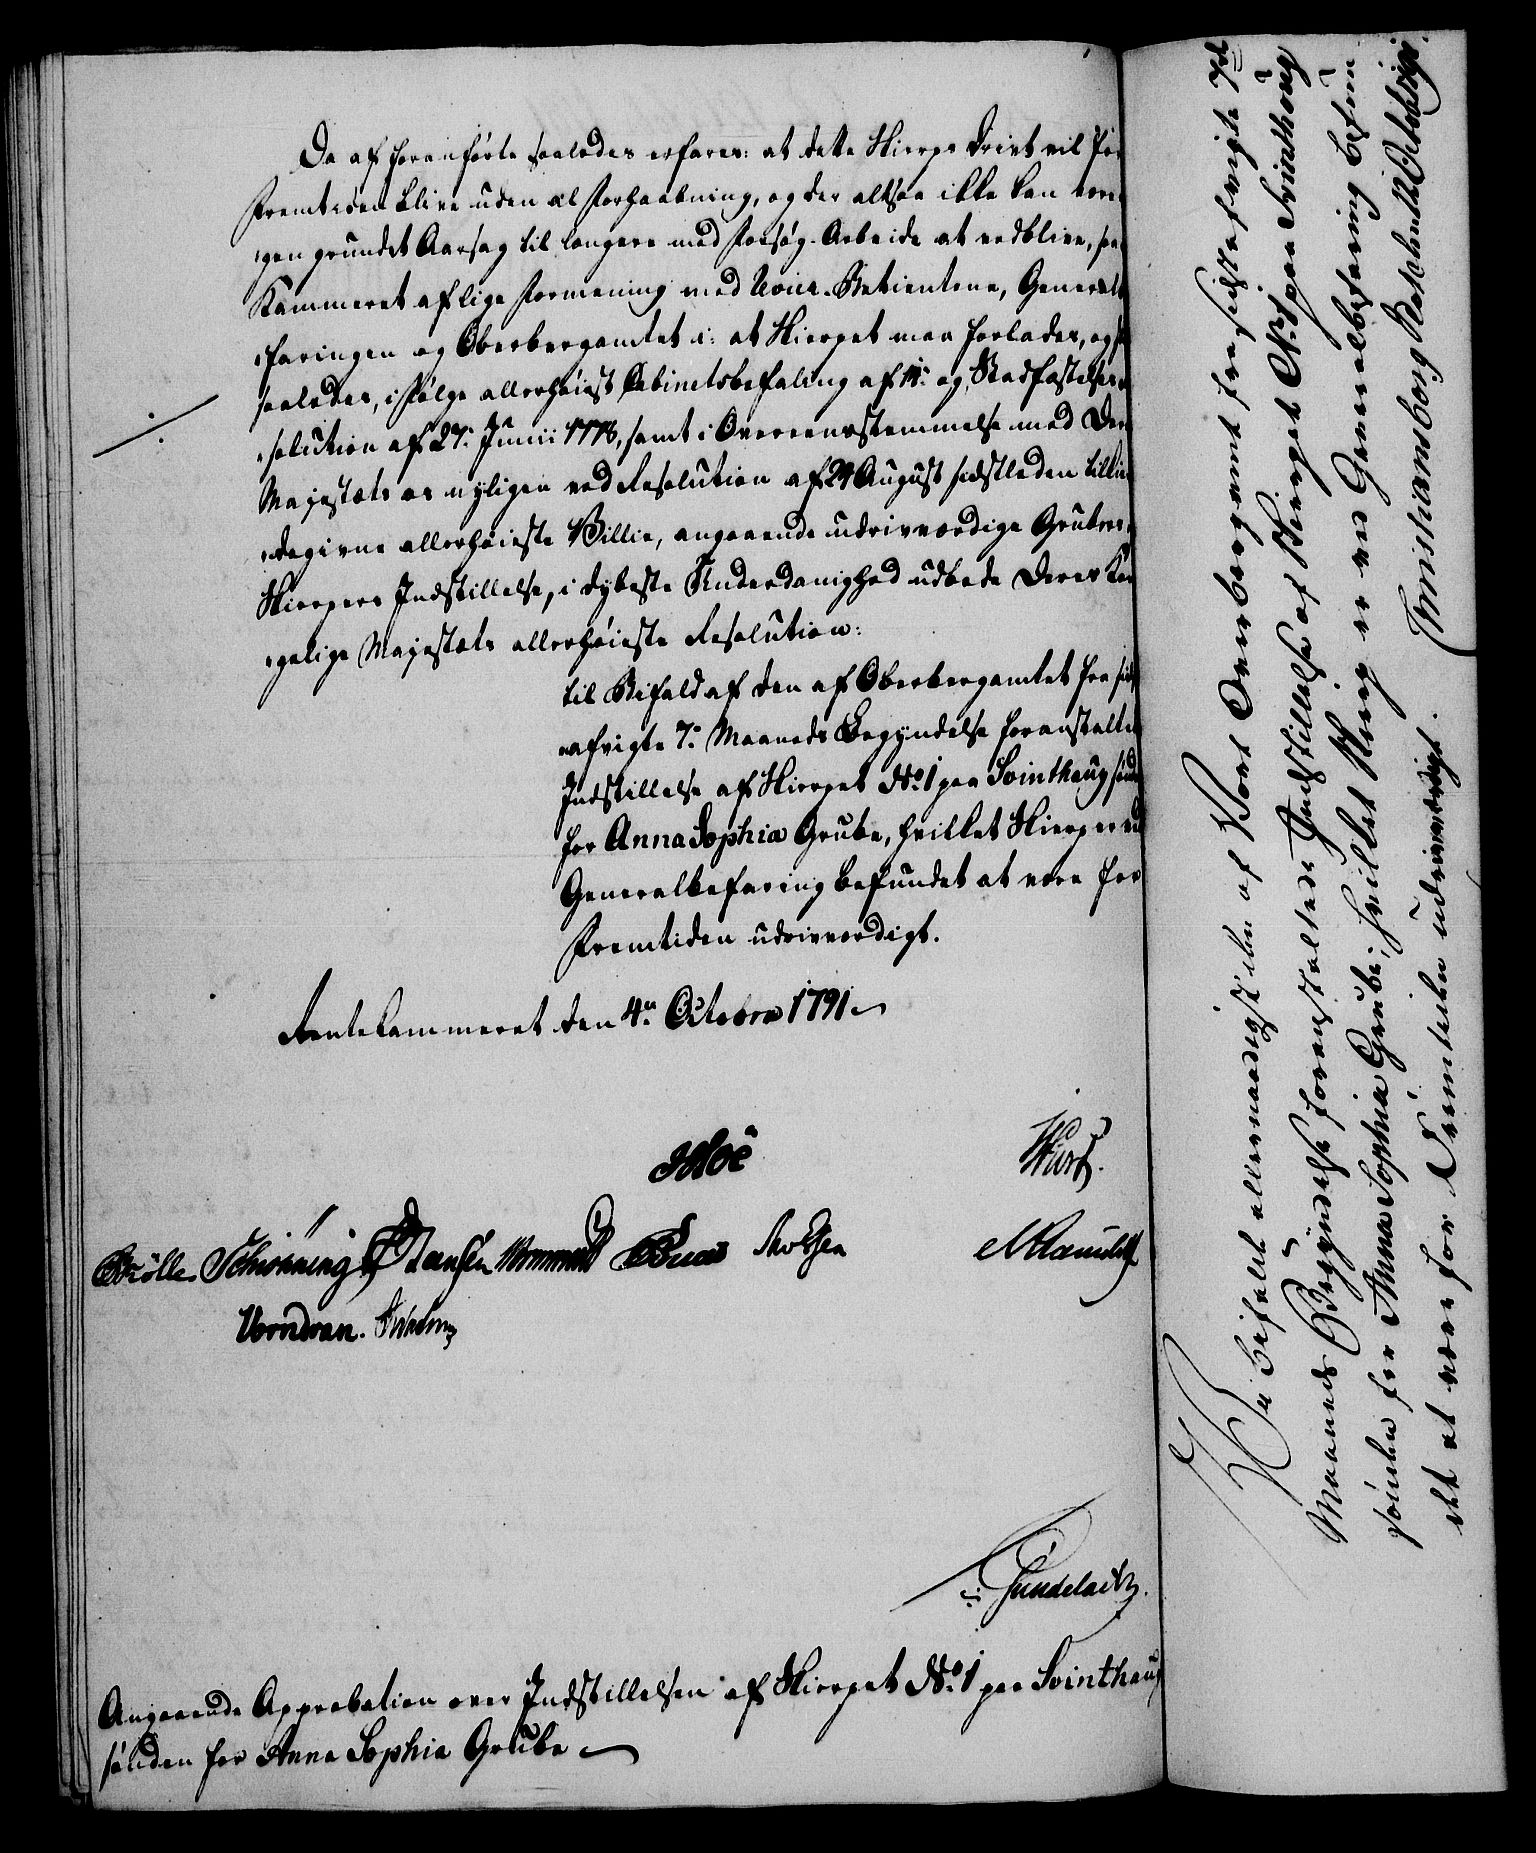 Da af foranførte saaledes erfares: at dette Skierps Drivt vil for
Fremtiden blive uden al Forhaabning, og der altsaa ikke kan være
nogen grundet Aarsag til længere med Forsøg-Arbeide at vedblive, saa
Kammeret af lige Formening med Betientene, General-
befaringen og Oberbergamtet i: at Skierpet maa forlades, og
saaledes, i følge allerhøiest Cabinetsbefaling af 18de og Stadfæstelses Re-
solution af 27de Junii 1778, samt i Overeensstemmelse med Deres
Majestæts os nyligen ved Resolution af 24 August sidstleden tillie-
degivne allerhøieste Villie, angaaende udrivværdige Grubers og
Skierpers Indstillelse, i dybeste Underdanighed udbede Deres Kon-
gelige Majestæts allerhøieste Resolution:
til Bifald af den af Oberbergamtet fra sidst
afvigte 7de Maaneds Begyndelse foranstaltede
Indstillelse af Skierpet No. 1 paa Svinthaug sønden
for Anna Sophia Grube, hvilket Skierp er ved
Generalbefaring befundet at være for
Fremtiden udrivværdigt.
Rentekammeret den 4de Octobre 1791
Hoë
Wurtz.
Brølle Schiønning Hansen Wormskiold
Vorndran.
Juudelaitz.
Angaaende Approbation over Indstillelsen af Skierpet No. 1 paa Svinthaug
sønden for Anna Sophia Grube
Vi bifalde allernaadigst den af Vort Overbergamt fra sidstafvigte 7de
Maaneds Begyndelse foranstaltede Indstillelse af Skierpet No. 1 paa Svinthoug
sønden for Anna Sophia Grube; hvilket Skierp er ved Generalbefaring befun-
det at være for Fremtiden udrivværdigt. Christiansborg Slot den 12 Octobr. 1791.